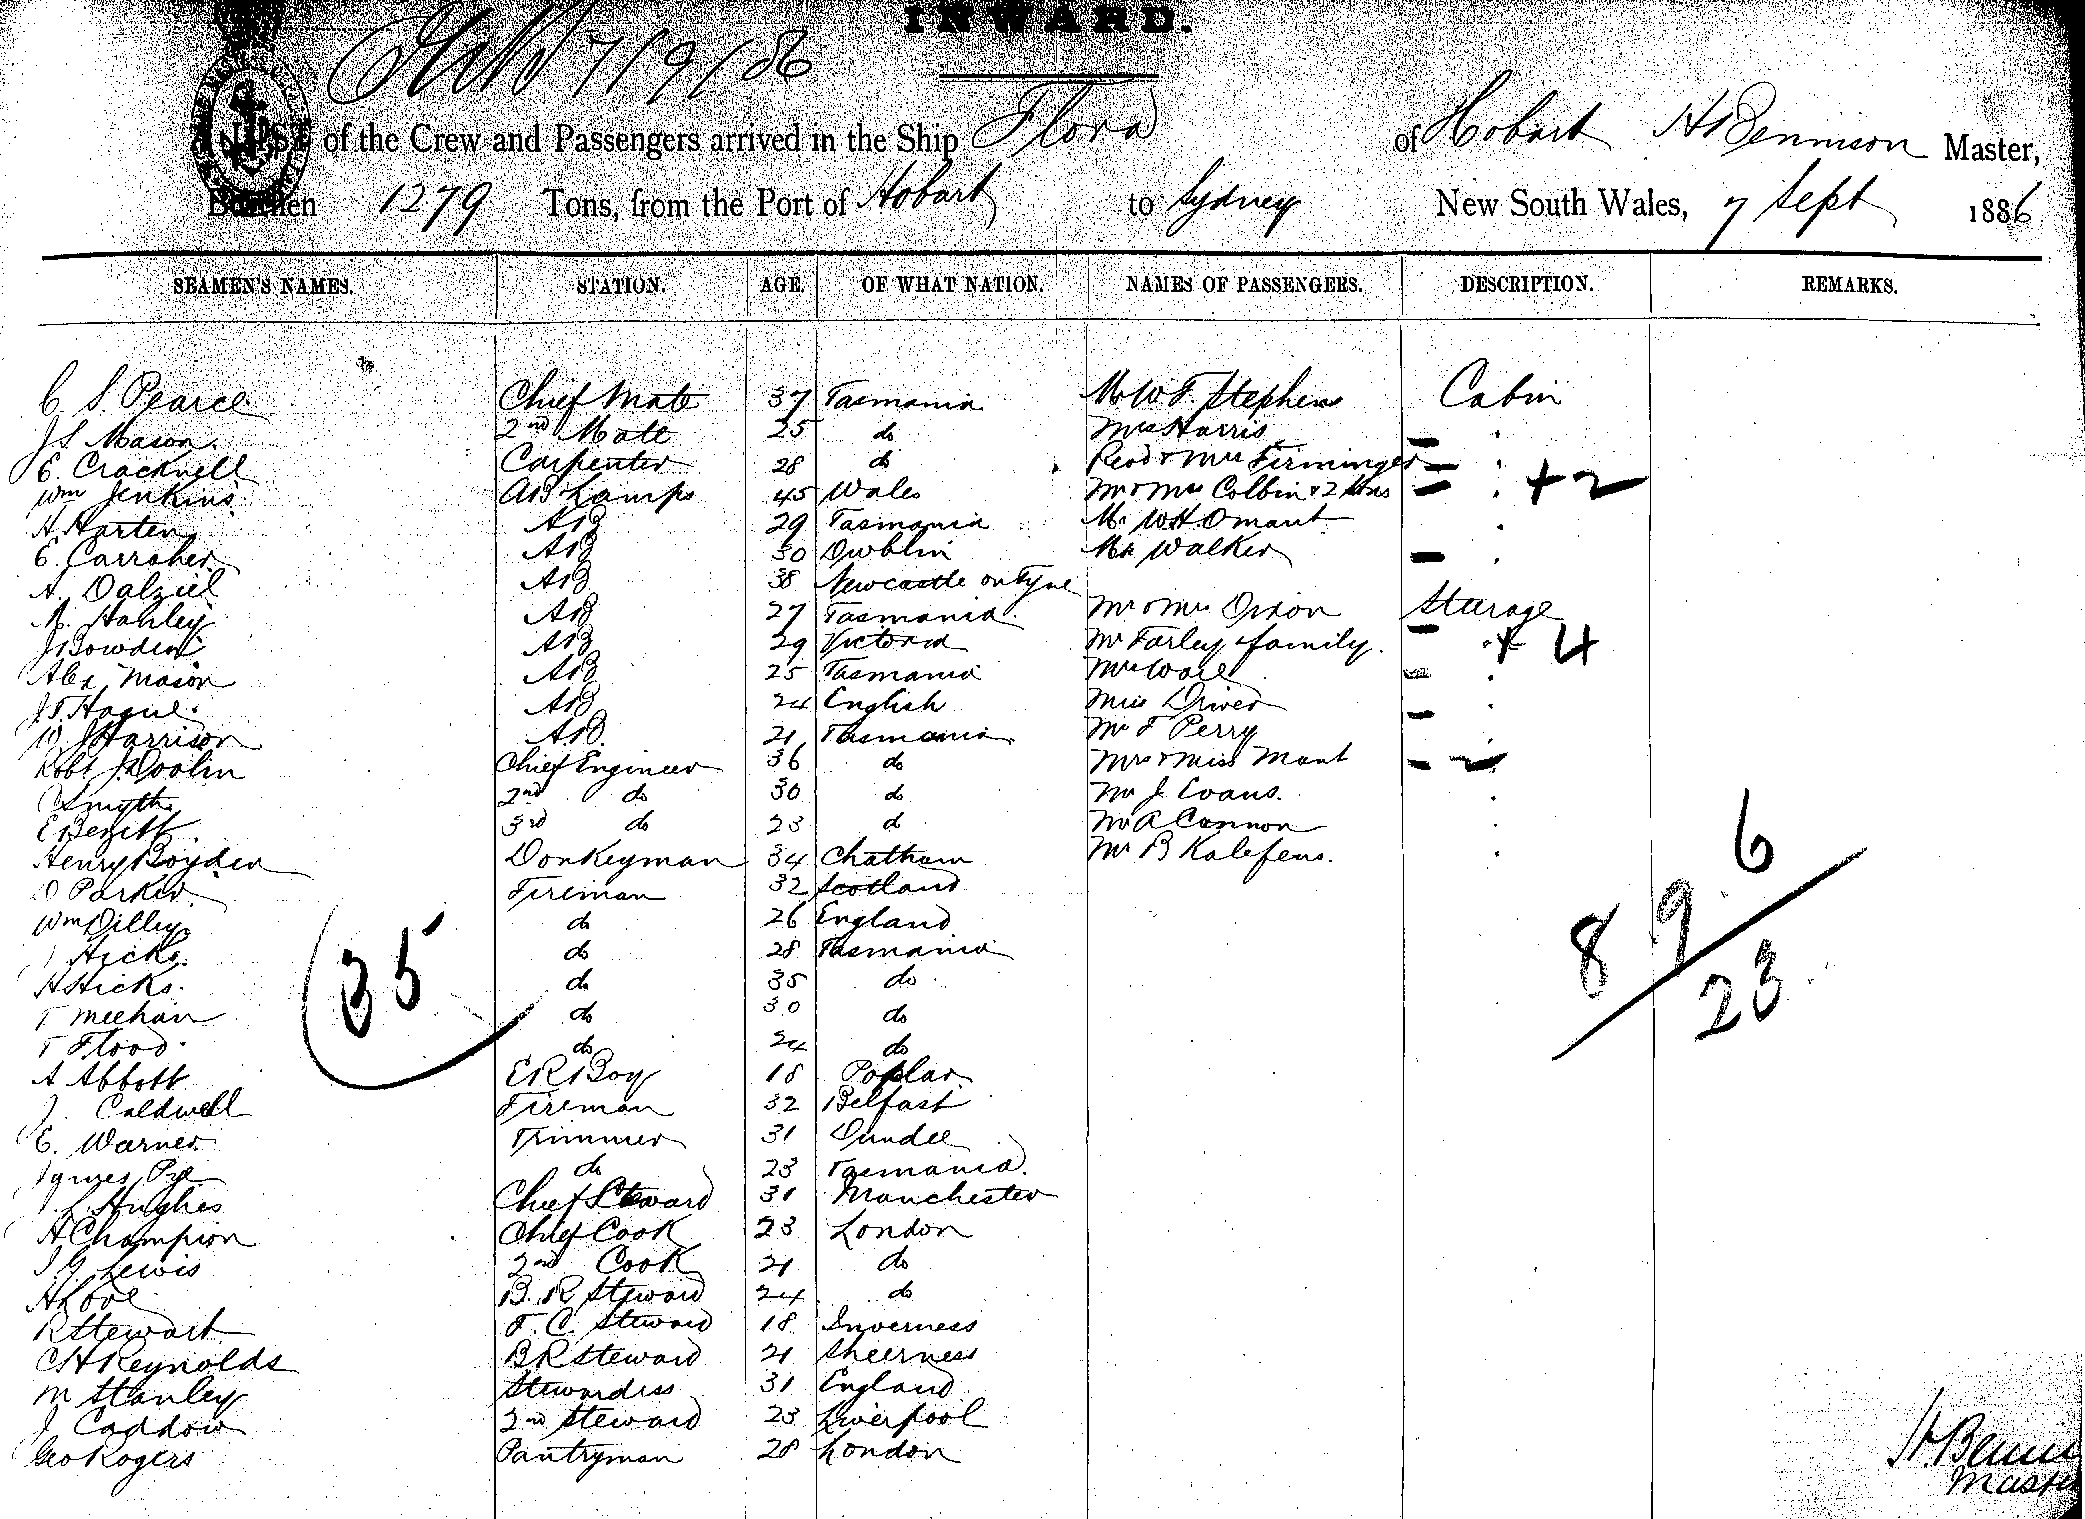 INWARD.
7/9/86
A LIST of the Crew and Passengers arrived in the Ship Flora of Hobart H Bennison Master,
Burthen 1279 Tons, from the Port of Hobart to Sydney New South Wales, 7 Sept 1886
SEAMEN'S NAMES. STATION. AGE. OF WHAT NATION. NAMES OF PASSENGERS. DESCRIPTION. REMARKS.
C S. Pearce Chief Mate 37 Tasmania Mr W F. Stephens Cabin
J S Mason. 2nd Mate 25 do Mrs Harris
E. Cracknell Carpenter 28 do Revd & Mrs Firminger
Wm Jenkins. AB Lamps 45 Wales Mr & Mrs Colbin & 2 + 2
H. Harten AB 29 Tasmania Mr W H Omant
E. Carraher AB 30 Dublin Mr Walker
A. Dalziel AB 38 Newcastle on Tyne
M. Hanley AB 27 Tasmania Mr & Mrs Dixon Sturage
J Bowden AB 29 Victoria Mr Farley & family. + 4
Alex Mason AB 25 Tasmania Mrs Wall
J T. Hague AB 24 English Miss Driver
W J Harrison AB 21 Tasmania Mr F Perry
Robt Doolin Chief Engineer 36 do Mrs & Miss Mant
Smyth 2nd do 30 do Mr J. Evans.
E Bezett 3rd do 23 do Mr A Cannon
Henry Boyden Donkeyman 34 Chatham Mr B Kalefens.
D Parker Fireman 32 Scotland
Wm Dilley do 26 England
J Hicks. do 28 Tasmania
H Hicks. do 35 do
T Meehan do 30 do
T Flood do 24 do
A Abbott ER Boy 18 Poplar
J. Caldwell Fireman 32 Belfast
E. Warner Trimmer 31 Dundee
James Pye do 23 Tasmania.
L Hughes Chief Steward 31 Manchester
H Champion Chief Cook 23 London
J G Lewis 2nd Cook 21 do
H Love B. R Steward 24 do
R Stewart F. C. Steward 18 Inverness
C H Reynolds B R Steward 21 Sheerness
M Stanley Stewardess 31 England
J Caddow 2nd Steward 23 Liverpool
Geo Rogers Pantryman 28 London
35
8 9 6
23
H. Benni
Maste